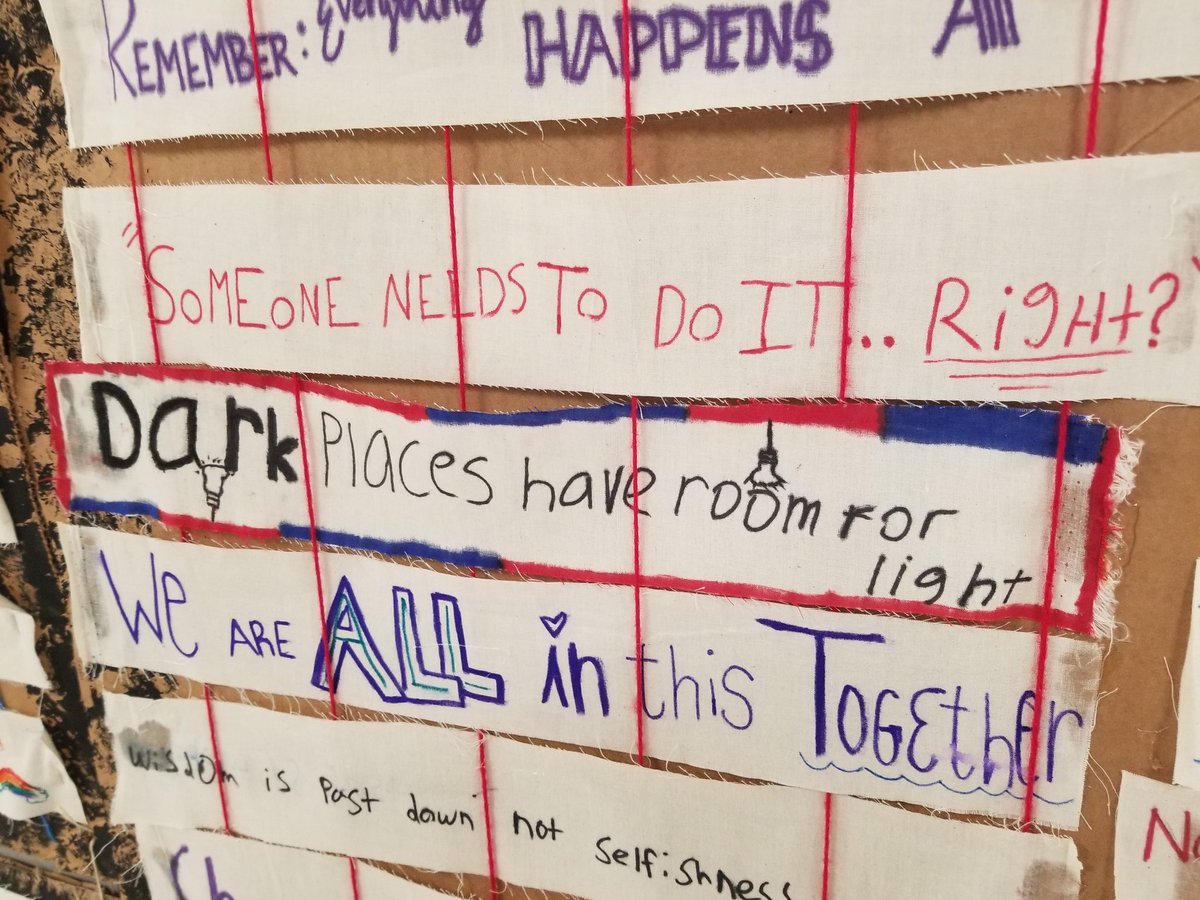 REMEMBER: Everything HAPPENS All
"SOMEONE NEEDS TO DO IT... RigHt?"
Dark Places have room for
light
We ARE ALL in this TOGETHER
wisdom is past down not selfishness
Ch
No